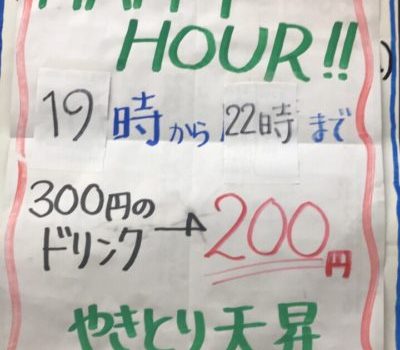 HAPPY
HOUR!!
19時から22時まで
300円の
ドリンク→200円
やきとり天昇